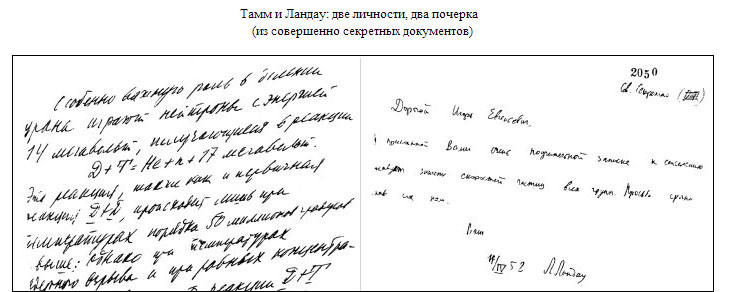 Тамм и Ландау: две личности, два почерка
(из совершенно секретных документов)
Особенно важную роль в делении
урана играют нейтроны с энергией
14 мегавольт, получающиеся в реакции
D+T = He+n+17 мегавольт.
Эта реакция, также как и первичная
реакция D+D, происходит лишь при
температурах порядка 50 миллионов градусов
выше: однако при температурах
взрыва и при равных концентра-
в реакции D+T
2050
Св. Секретно
Дорогой Игорь Евгеньевич,
В присланной Вами описи подписанной записке к сожалению
значения скоростей частиц всех групп. Просьба
их нам.
Ваш
52 Л Ландау